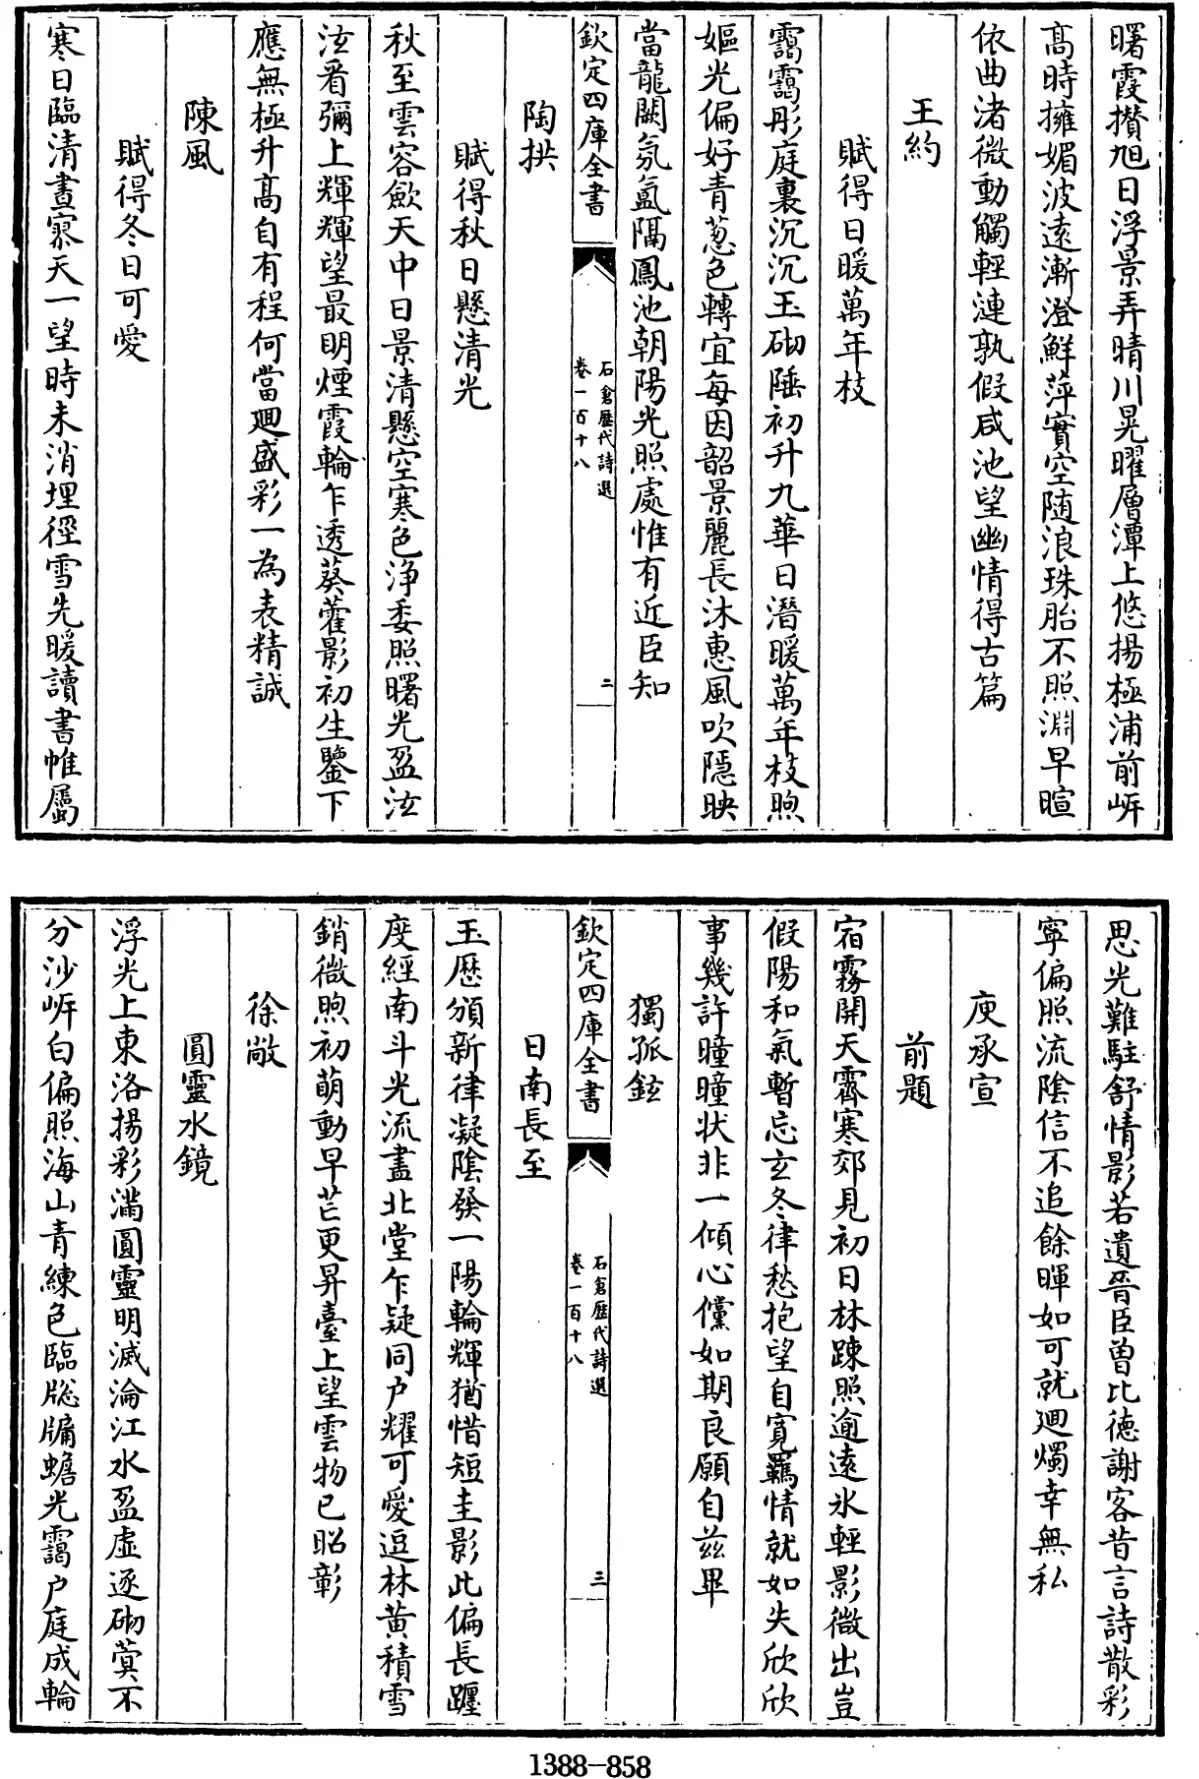 曙霞攢旭日浮景弄晴川晃曜層潭上悠揚極浦前㟁
高時擁媚波遠漸澄鮮萍實空随浪珠胎不照淵早暄
依曲渚微動觸輕漣孰假咸池望幽情得古篇
王約
賦得日暖萬年枝
靄靄彤庭裏沉沉玉砌陲初升九華日潛暖萬年枝煦
嫗光偏好青葱色轉宜每因韶景麗長沐惠風吹隱映
當龍闕氛氲隔鳳池朝陽光照處惟有近臣知
欽定四庫全書
石倉歷代詩選
卷一百十八
二
陶拱
賦得秋日懸清光
秋至雲容歛天中日景清懸空寒色淨委照曙光盈泫
泫看彌上輝輝望最明煙霞輪乍透葵藿影初生鑒下
應無極升髙自有程何當廻盛彩一為表精誠
陳風
賦得冬日可愛
寒日臨清晝寥天一望時未消埋徑雪先暖讀書帷屬
思光難駐舒情影若遺晉臣曽比徳謝客昔言詩散彩
寧偏照流陰信不追餘暉如可就廻燭幸無私
庾承宣
前題
宿霧開天霽寒郊見初日林踈照逾遠氷輕影微出豈
假陽和氣暫忘玄冬律愁抱望自寛羈情就如失欣欣
事幾許曈曈狀非一傾心儻如期良願自兹畢
獨孤鉉
日南長至
欽定四庫全書
石倉歷代詩選
卷一百十八
三
玉厯頒新律凝陰發一陽輪輝猶惜短圭影此偏長躔
度經南斗光流盡北堂乍疑同户耀可愛逗林黄積雪
銷微煦初萌動早芒更昇臺上望雲物已昭彰
徐敞
圓靈水鏡
浮光上東洛揚彩滿圓靈明滅淪江水盈虛逐砌蓂不
分沙㟁白偏照海山青練色臨牎牖蟾光靄户庭成輪
1388-858